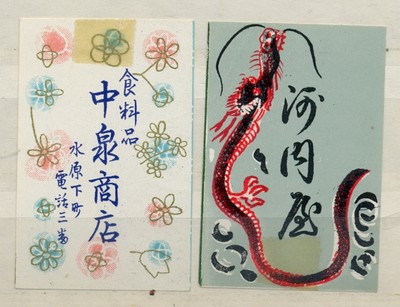 食料品
中泉商店
水原下町
電話三番
河内屋